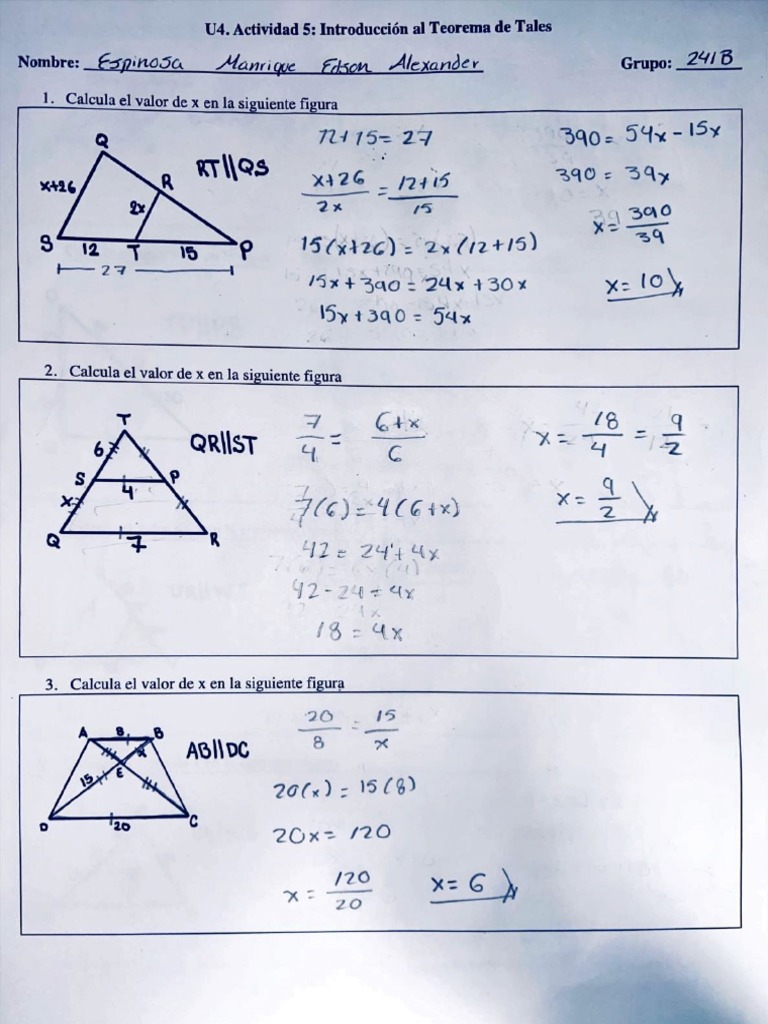 U4. Actividad 5: Introducción al Teorema de Tales
Nombre: Espinosa Manrique Edson Alexander Grupo: 241B
1. Calcula el valor de x en la siguiente figura
Q
x+26
R
2x
S 12 T 15 P
27
RT||QS
12+15=27
x+26/2x = 12+15/15
15(x+26) = 2x(12+15)
15x+390=24x+30x
15x+390=54x
390=54x-15x
390=39x
x=390/39
x=10
2. Calcula el valor de x en la siguiente figura
T
6
S 4 P
x
Q 7 R
QR||ST
7/4 = 6+x/6
7(6)=4(6+x)
42=24+4x
42-24=4x
18=4x
x=18/4=9/2
x=9/2
3. Calcula el valor de x en la siguiente figura
A 8 B
x
E
15
D 20 C
AB||DC
20/8=15/x
20(x)=15(8)
20x=120
x=120/20
x=6